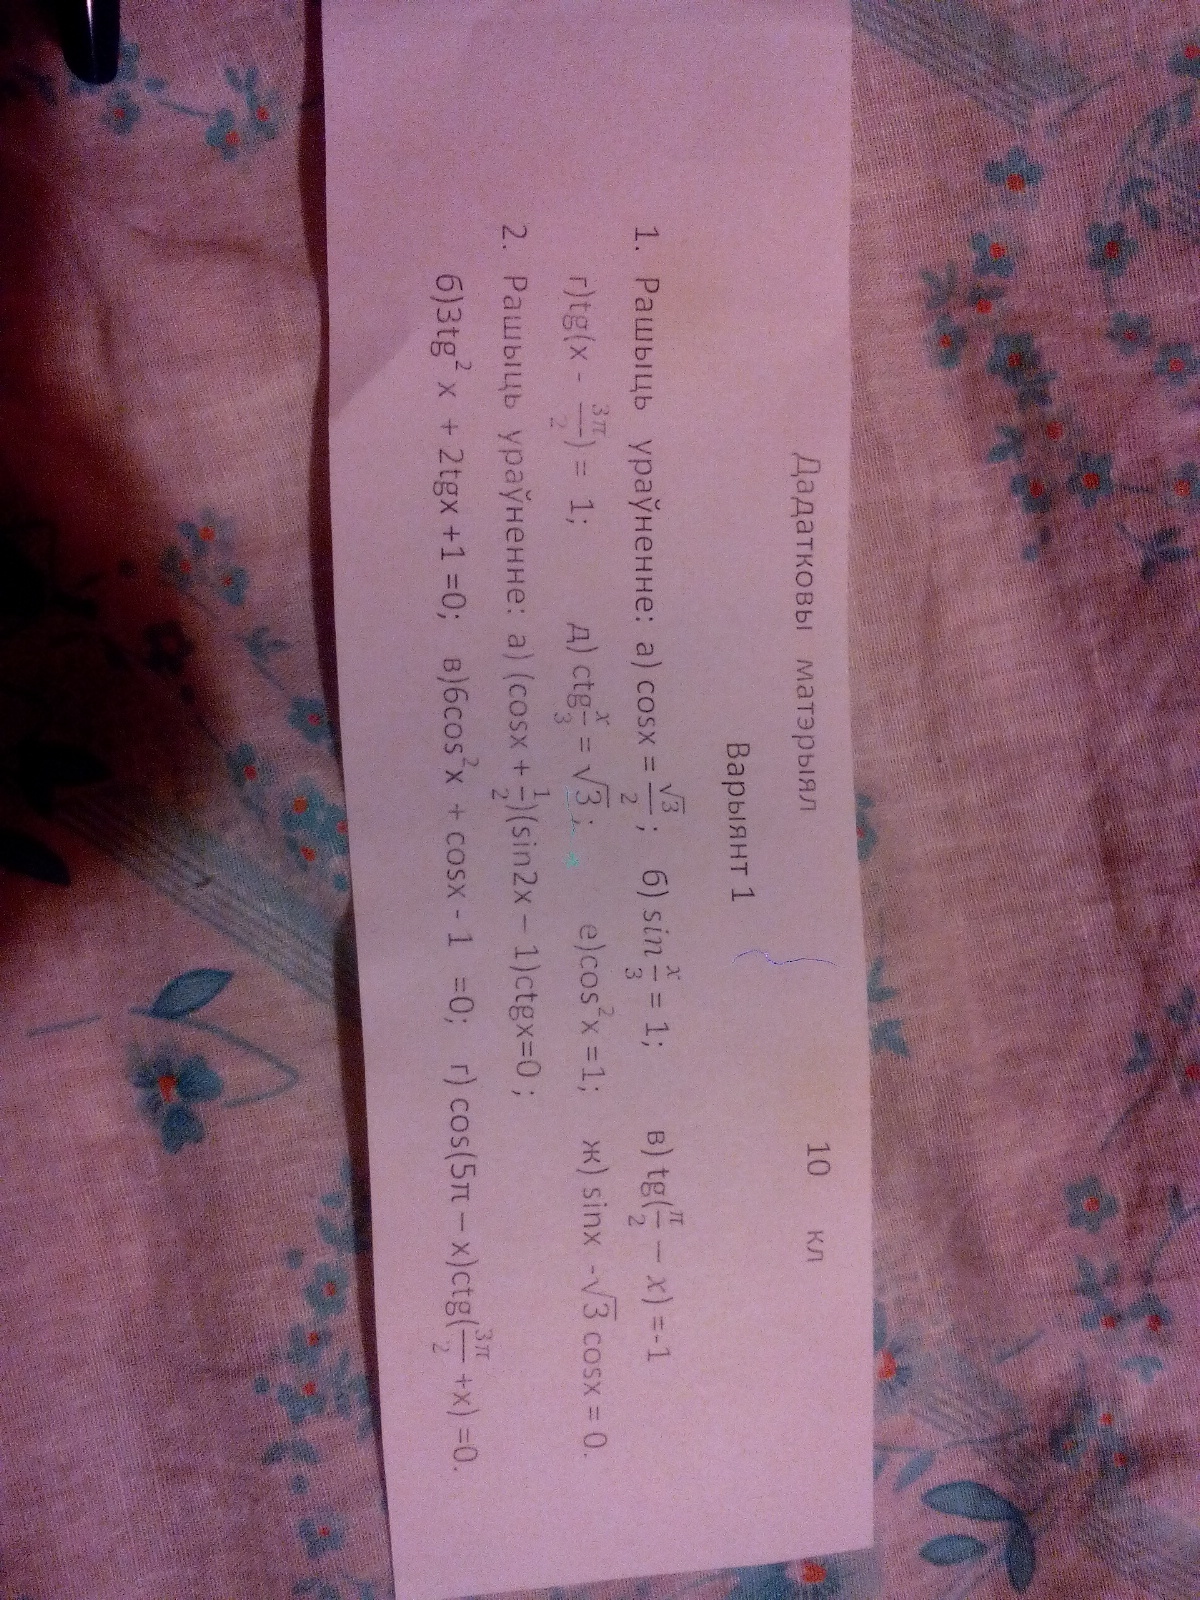 Дадатковы матэрыял 10 кл
Варыянт 1
1. Рашыць ураўненне: а) cosx = √3/2 ; б) sin x/3 = 1; в) tg(π/2 − x) =-1
г)tg(x - 3π/2) = 1; д) ctg x/3 = √3 ; е)cos²x =1; ж) sinx -√3 cosx = 0.
2. Рашыць ураўненне: а) (cosx + 1/2)(sin2x − 1)ctgx=0 ;
б)3tg² x + 2tgx +1 =0; в)6cos²x + cosx - 1 =0; г) cos(5π − x)ctg(3π/2 +x) =0.